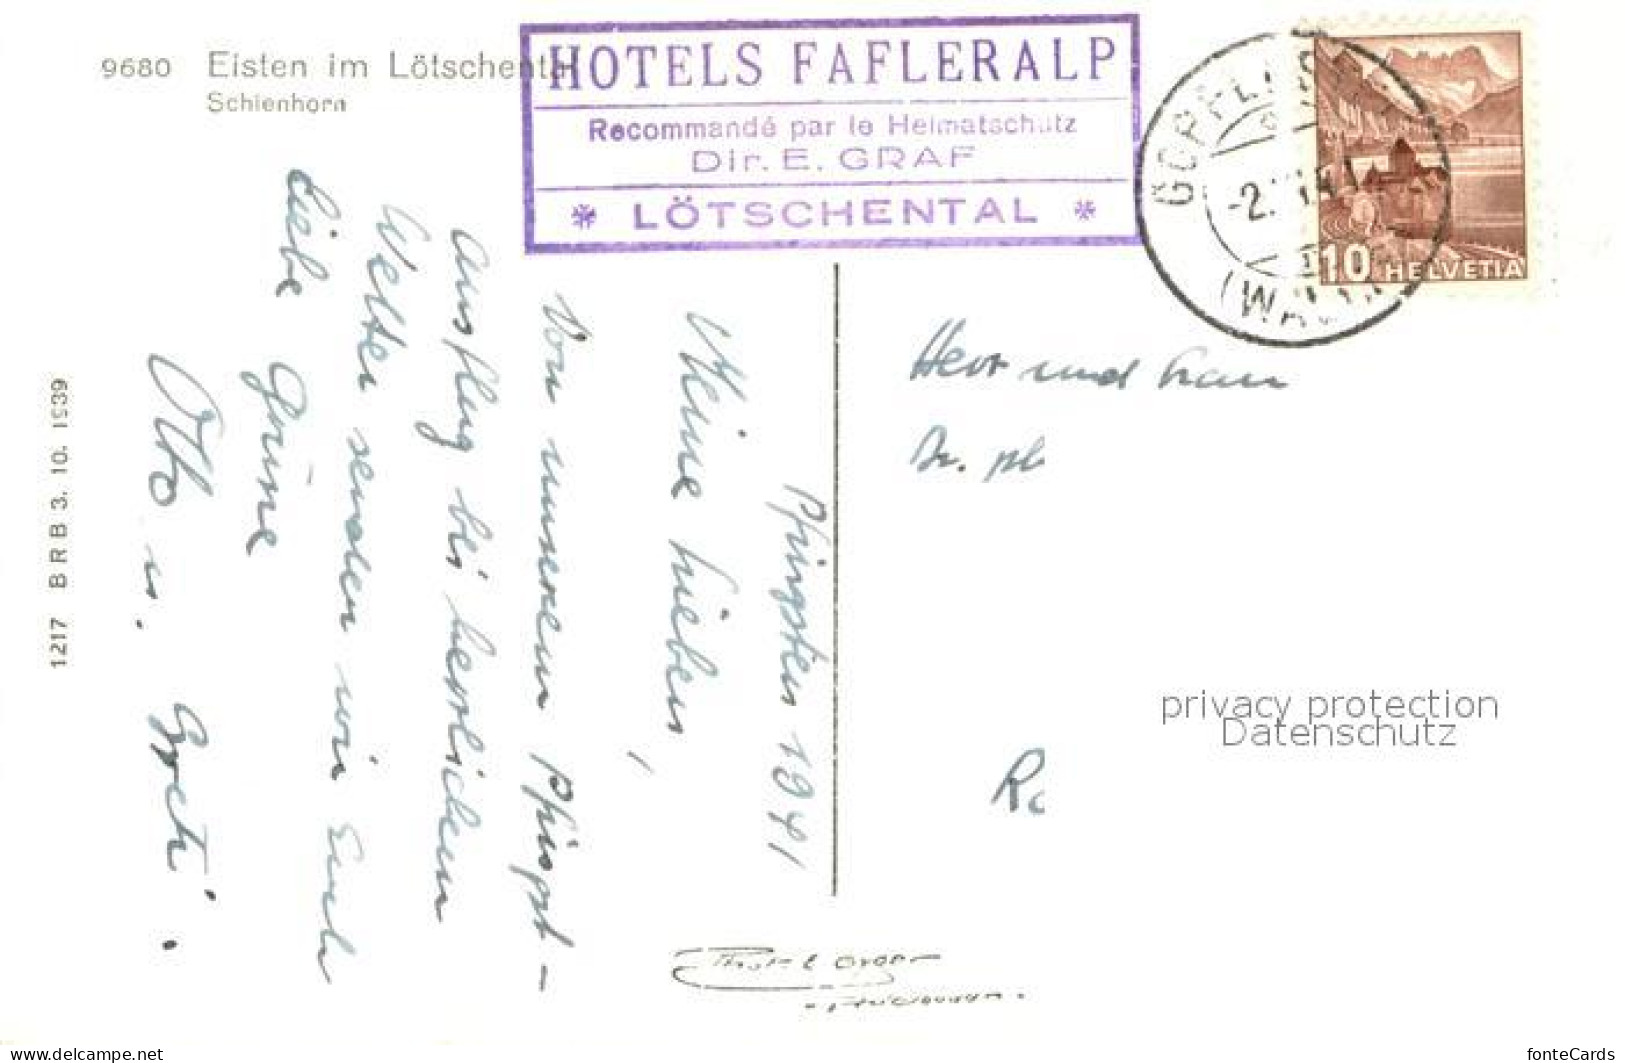 9680 Eisten im Lötschental
Schienhorn
HOTELS FAFLERALP
Recommandé par le Heimatschutz
Dir. E. GRAF
* LÖTSCHENTAL *
-2.
10 HELVETIA
Pfingsten 1941
Meine Lieben,
Von unserem Pfingst-
ausflug bei herrlichem
Wetter senden wir Euch
liebe Grüsse
Otto u. Greti.
Herr und Frau
Dr.
1217 BRB 3. 10. 1939
privacy protection
Datenschutz
delcampe.net
MarktplatzWelt
fonteCards